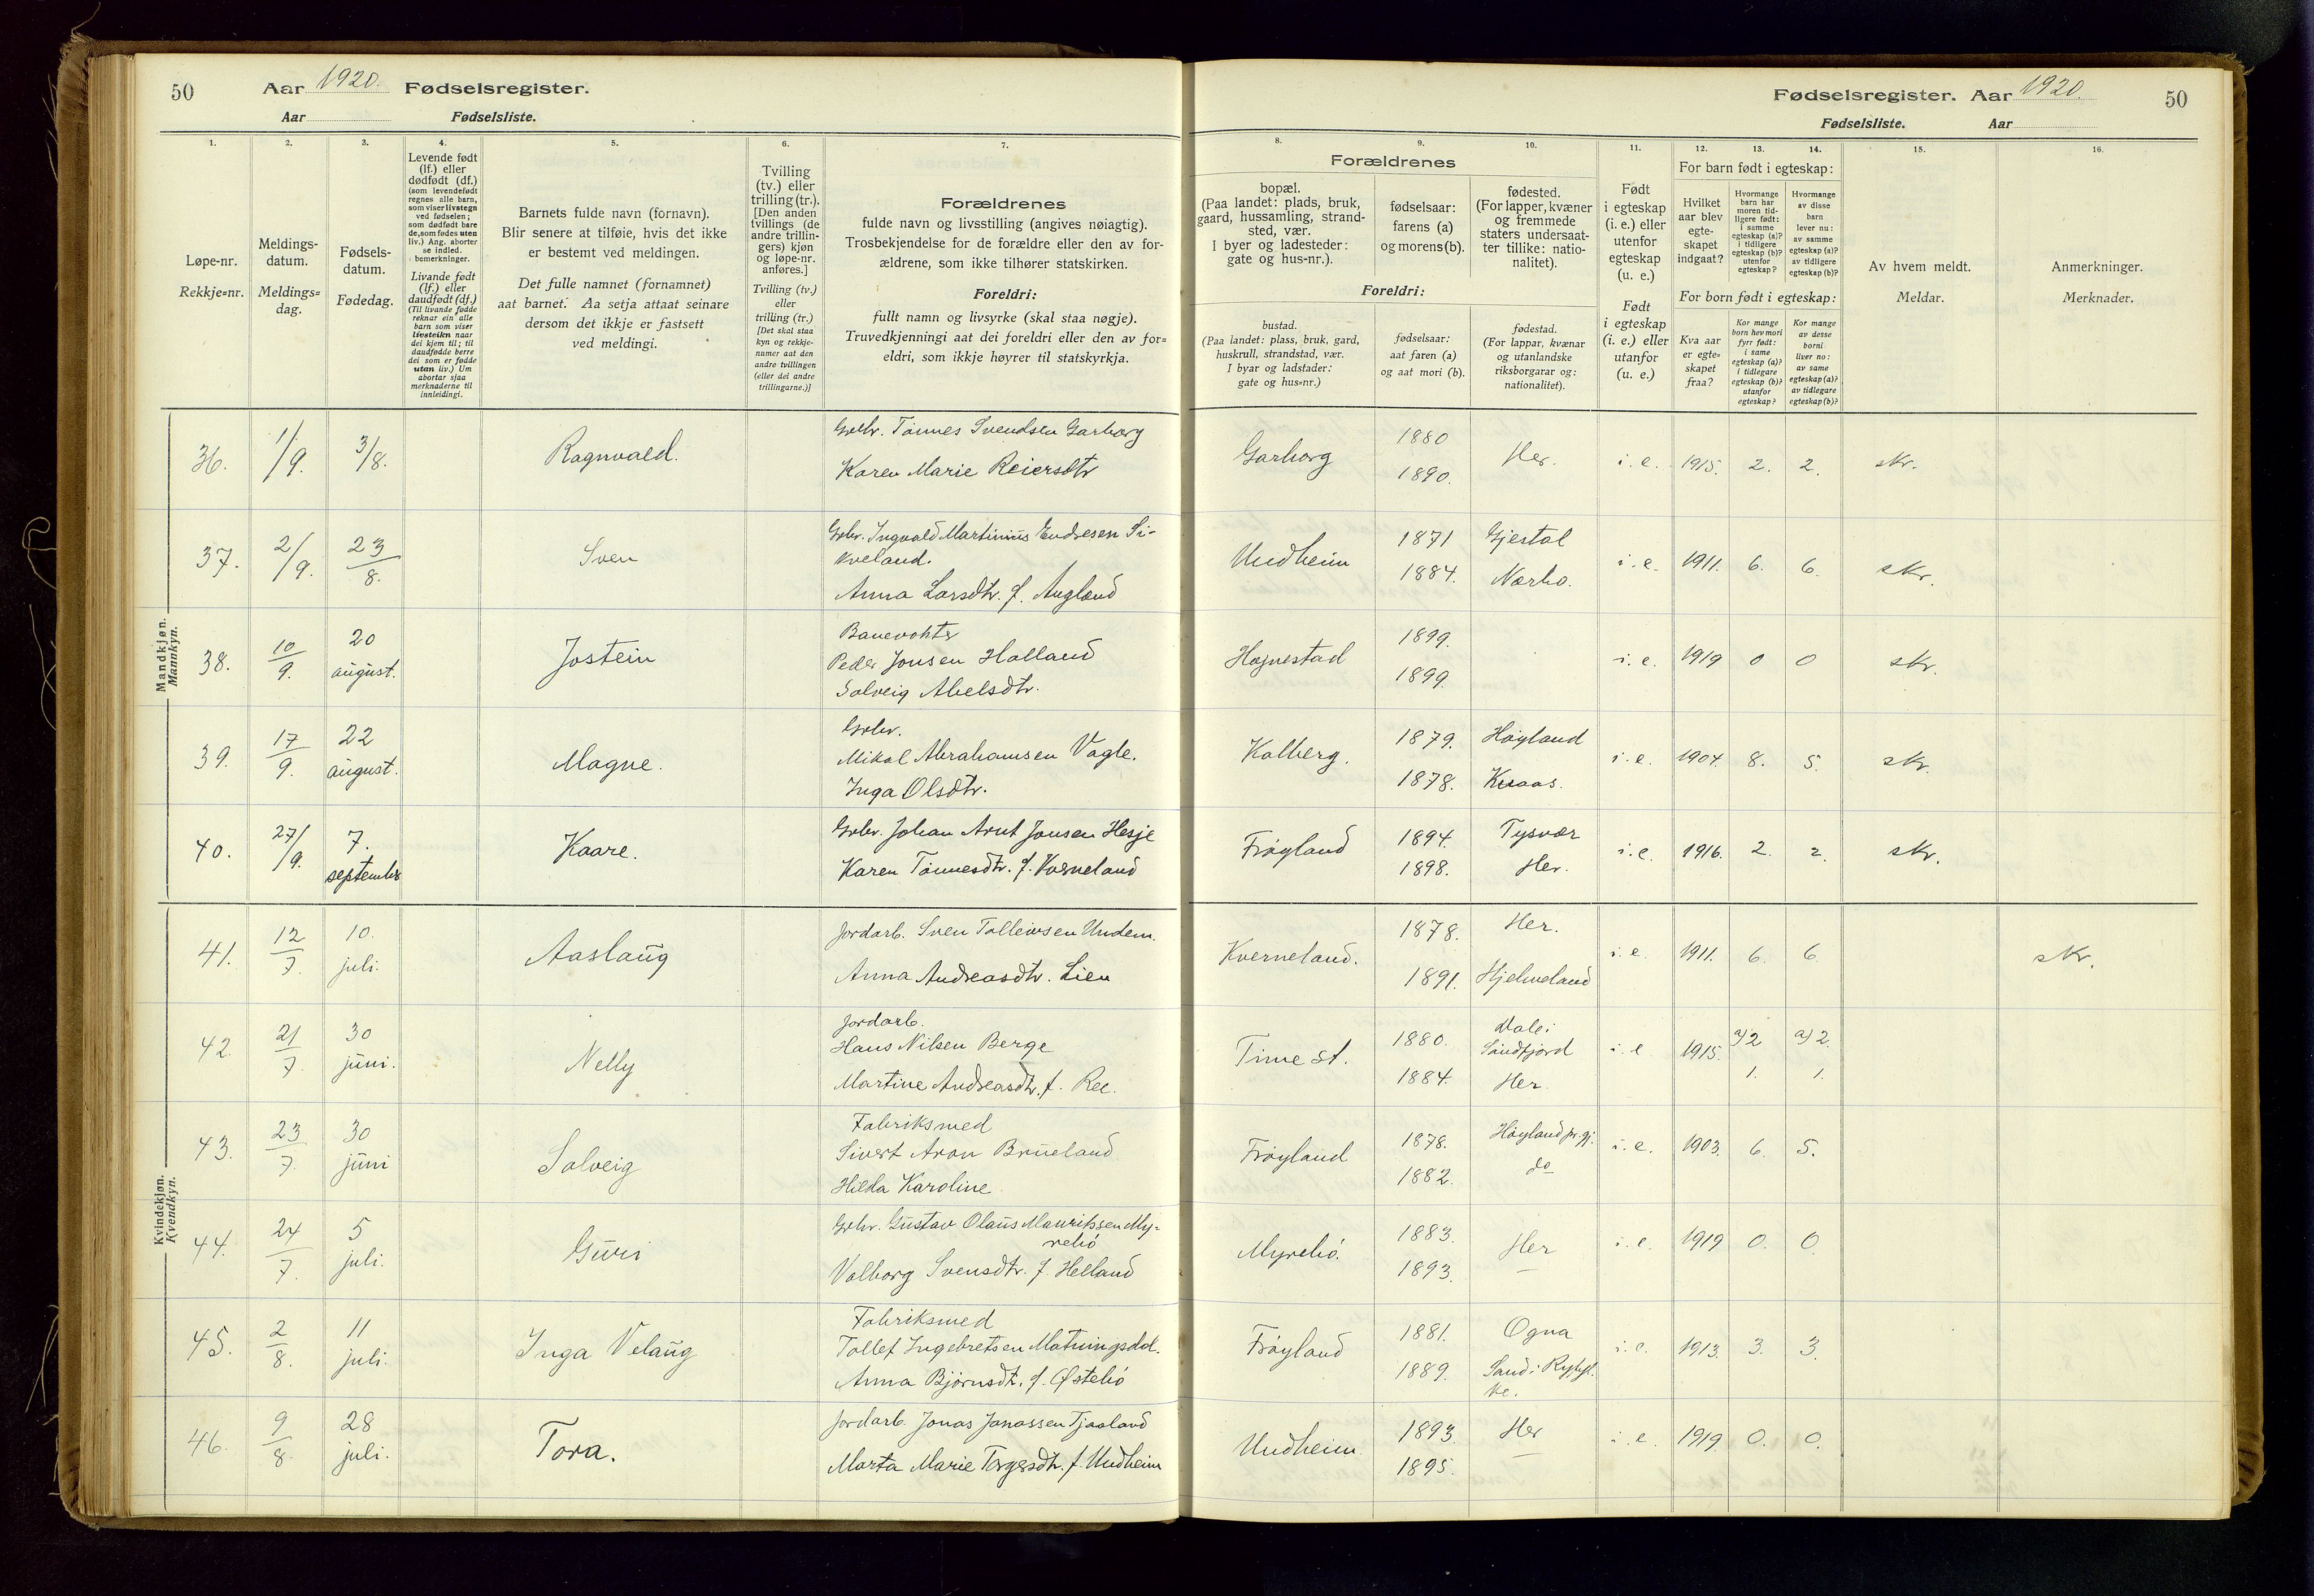 50
Aar 1920. Fødselsregister.
Aar Fødselsliste.
Fødselsregister. Aar 1920.
50
Fødselsliste. Aar
1.
Løpe-nr.
Rekkje=nr.
2.
Meldings-
datum.
Meldings=
dag.
3.
Fødsels-
datum.
Fødedag.
4.
Levende født
(lf.) eller
dødfødt (df.)
(som levendefødt
regnes alle barn,
som viser livstegn
ved fødselen;
som dødfødt bare
de, som fødes uten
liv.) Ang. aborter
se indled.
bemerkninger.
Livande født
(lf.) eller
daudfødt (df.)
(Til livande fødde
reknar ein alle
barn som viser
livsteikn naar
dei kjem til; til
daudfødde berre
dei som er fødde
utan liv.) Um
abortar sjaa
merknaderne til
innleidingi.
5.
Barnets fulde navn (fornavn).
Blir senere at tilføie, hvis det ikke
er bestemt ved meldingen.
Det fulle namnet (fornamnet)
aat barnet. Aa setja attaat seinare
dersom det ikkje er fastsett
ved meldingi.
6.
Tvilling
(tv.) eller
trilling (tr.).
[Den anden
tvillings (de
andre trillin-
gers) kjøn
og løpe-nr.
anføres.]
Tvilling (tv.)
eller
trilling (tr.)
[Det skal staa
kyn og rekkje-
numer aat den
andre tvillingen
(eller dei andre
trillingarne.)]
7.
Forældrenes
fulde navn og livsstilling (angives nøiagtig).
Trosbekjendelse for de forældre eller den av for-
ældrene, som ikke tilhører statskirken.
Foreldri:
fullt namn og livsyrke (skal staa nøgje).
Truvedkjenningi aat dei foreldri eller den av for=
eldri, som ikkje høyrer til statskyrkja.
8.
9.
10.
Forældrenes
bopæl.
(Paa landet: plads, bruk,
gaard, hussamling, strand-
sted, vær.
I byer og ladesteder:
gate og hus-nr.).
fødselsaar:
farens (a)
og morens (b).
fødested.
(For lapper, kvæner
og fremmede
staters undersaat-
ter tillike: natio-
nalitet).
Foreldri:
bustad.
(Paa landet: plass, bruk, gard,
huskrull, strandstad, vær.
I byar og ladstader:
gate og hus=nr.)
fødselsaar:
aat faren (a)
og aat mori (b).
fødestad.
(For lappar, kvænar
og utanlandske
riksborgarar og:
nationalitet).
11.
Født
i egteskap
(i. e.) eller
utenfor
egteskap
(u. e.)
Født
i egteskap
(i. e.) eller
utanfor
(u. e.)
12.
13.
14.
For barn født i egteskap:
Hvilket
aar blev
egte-
skapet
indgaat?
Hvormange
barn har
moren tid-
ligere født:
i samme
egteskap (a)?
i tidligere
egteskap (b)?
utenfor
egteskap?
Hvormange
av disse
barn
lever nu:
av samme
egteskap (a)?
av tidligere
egteskap (b)?
For born født i egteskap:
Kva aar
er egte=
skapet
fraa?
Kor mange
born hev mori
fyrr født:
i same
egteskap (a)?
i tidlegare
egteskap (b)?
utanfor
egteskap?
Kor mange
av desse
borni
liver no:
av same
egteskap (a)?
av tidlegare
egteskap (b)?
15.
Av hvem meldt.
Meldar.
16.
Anmerkninger.
Merknader.
Mandkjøn.
Mannkyn.
36. 1/9. 3/8. Ragnvald. Gbr. Tönnes Svendsen Garborg
Karen Marie Reiersdtr
Garborg 1880 1890. Her. i. e. 1915. 2. 2. skr.
37. 2/9. 23/8. Sven Gbr. Ingvald Martinius Endresen Si-
kveland.
Anna Larsdtr. f. Augland
Undheim 1871 1884. Gjestal Nærbø. i. e. 1911. 6. 6. skr.
38. 10/9. 20 august. Jostein Banevokter
Peder Jonsen Holland
Solveig Abelsdtr.
Hognestad 1899. 1899. i. e. 1919 0 0 skr.
39. 17/9. 22 august. Magne. Gbr.
Mikal Abrahamsen Vagle.
Inga Olsdtr.
Kalberg. 1879. 1878. Høyland i. e. 1904. 8. 5. skr.
40. 27/9. 7. september Kaare. Gbr. Johan Arnt Jonsen Hesje
Karen Tönnesdtr. f. Kverneland
Frøyland 1894. 1898. Tysvær Her. i. e. 1916. 2. 2. skr.
Kvindekjøn.
Kvendkyn.
41. 12/7. 10. juli. Aaslaug Jordarb. Sven Tolleivsen Undem.
Anna Andreasdtr. Lien
Kverneland. 1878. 1891. Her. Hjelmeland i. e. 1911. 6. 6. skr.
42. 21/7. 30 juni. Nelly Jordarb.
Hans Nilsen Berge
Martine Andreasdtr. f. Ree.
Time st. 1880. 1884. Dale i Sundfjord Her. i. e 1915. a) 2 1. a) 2. 1.
43. 23/7. 30 juni Solveig Fabriksmed
Sivert Aron Brueland
Hilda Karoline
Frøyland 1878. 1882. Høyland pr.gj. do i. e. 1903. 6. 5.
44. 24/7. 5 juli. Guri Gbr. Gustav Olaus Mauritssen My-
relió
Valborg Svensdtr. f. Helland
Myrelió. 1883. 1893. Her i. e. 1919 0. 0.
45. 2/8. 11 juli. Inga Velaug Fabriksmed
Tollef Ingebretsen Matningsdal.
Anna Bjørnsdtr. f. Østelió
Frøyland 1881. 1889. Ogna Sand i Ryfyl.
ke. i. e. 1913. 3. 3.
46. 9/8. 28 juli. Tora. Jordarb. Jonas Jonassen Tjaaland
Marta Marie Torgersdtr. f. Undheim
Undheim 1893. 1895. Her i. e. 1919 0. 0.